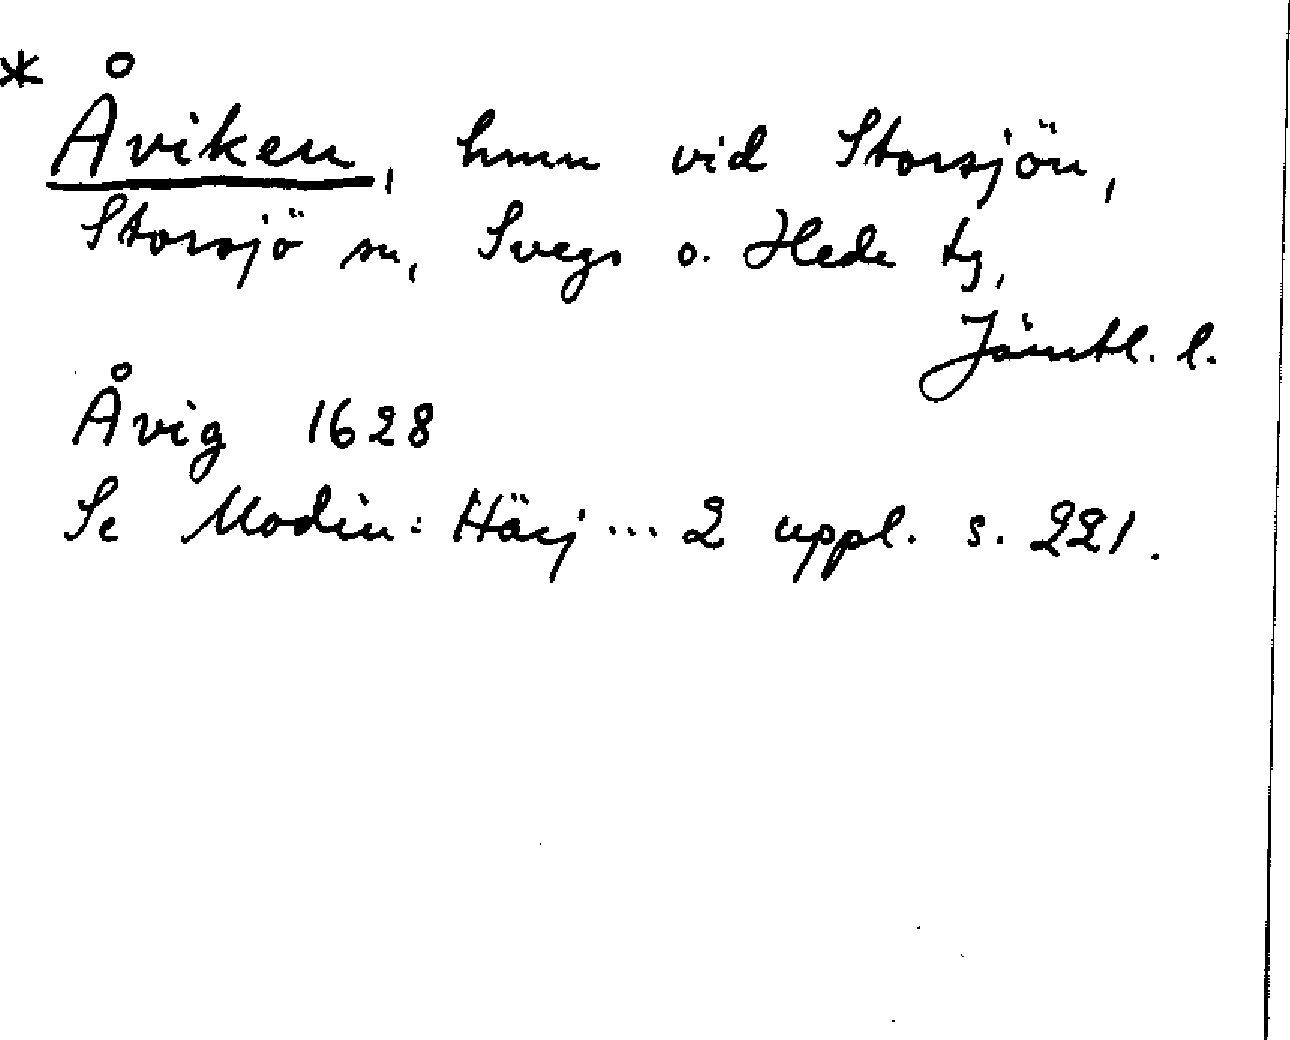 * Åviken, hmn vid Storsjön,
Storsjö sn, Svegs o. Hede tg,
Jämtl. l.
Åvig 1628
Se Modin: Härj... 2 uppl. s. 221.